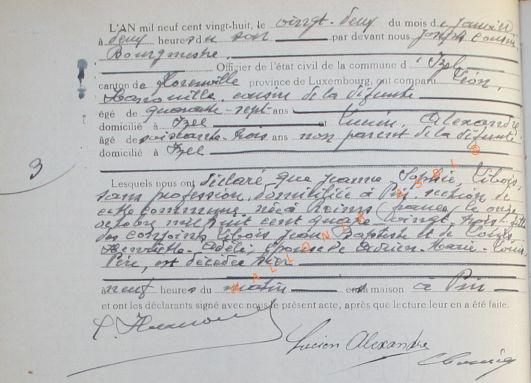 L'AN mil neuf cent vingt-huit, le vingt-deux du mois de Janvier
à deux heures du soir par devant nous Joseph
Bourgmestre
Officier de l'état civil de la commune d' Izel
canton de Florenville province de Luxembourg, ont comparu Léon,
cousin de la défunte
âgé de quarante-sept ans
domicilié à Izel et Lucien Alexandre
âgé de soixante-trois ans non parent de la défunte
domicilié à Izel
3
Lesquels nous ont déclaré que Jeanne Sophie
sans profession, domiciliée à Pin section de
cette commune, née à Reims, France, le onze
octobre mil huit cent quatre vingt trois, fille
des conjoints Jean Baptiste et de
Henriette Adèle, épouse de Adrien Marie Louis
est décédée hier
neuf heures du matin en sa maison à Pin
et ont les déclarants signé avec nous le présent acte, après que lecture leur en a été faite.
Lucien Alexandre